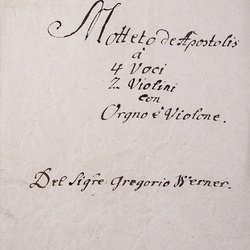 Motteto de Apostolis
à
4 Voci
2 Violini
con
Orgno è Violone.
Del Sigre Gregorio Werner.